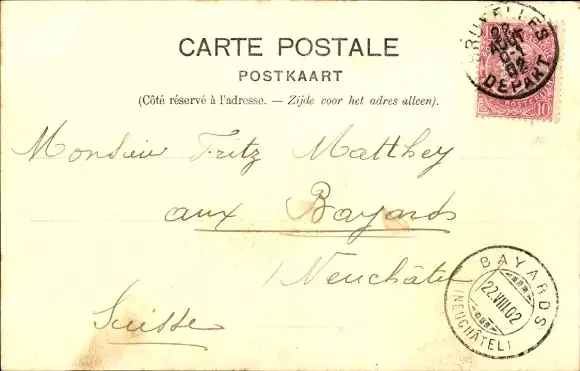 CARTE POSTALE
POSTKAART
(Côté réservé à l'adresse. — Zijde voor het adres alleen).
BRUXELLES
AOUT
02
DEPART
10
Monsieur Fritz Matthey
aux Bayards
Neuchâtel
Suisse
BAYARDS
22.VIII.02
(NEUCHÂTEL)